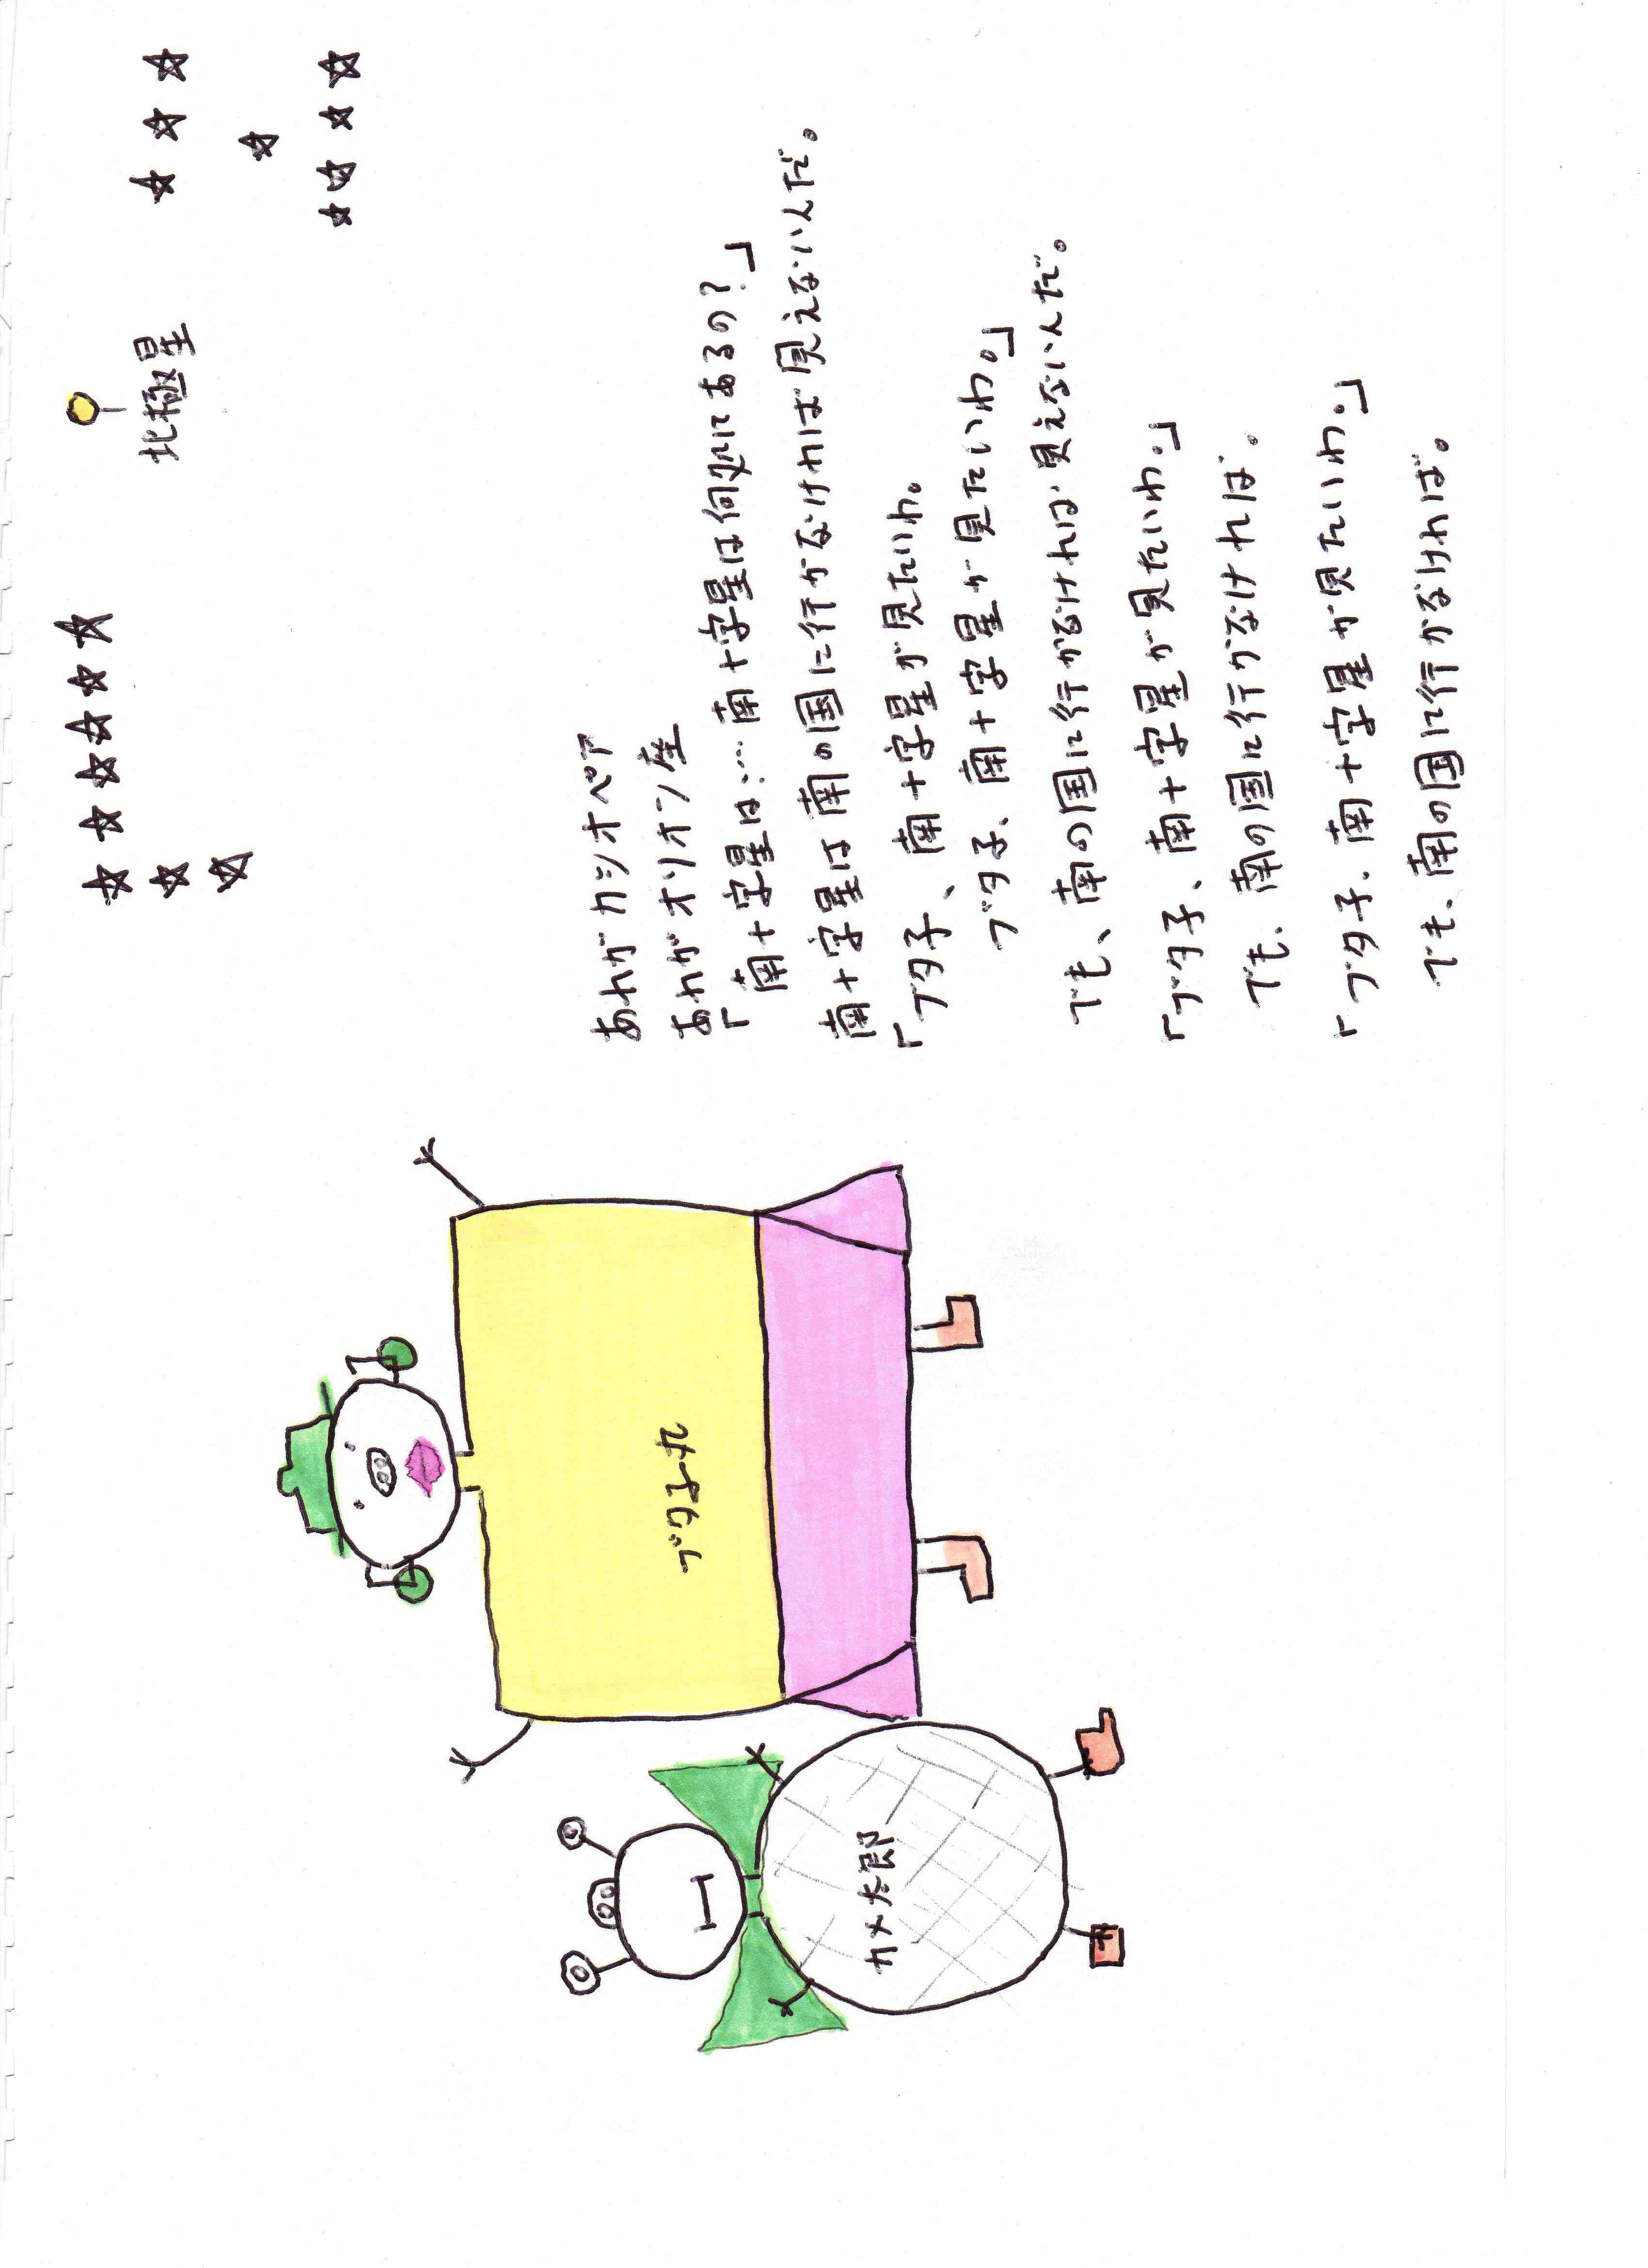 北極星
あれがカシオペア
あれがオリオン座
「南十字星は…南十字星は何処にあるの?」
南十字星は南の国に行かなければ見えないんだ。
「ブタ子、南十字星が見たいわ。
ブタ子、南十字星が見たいわ。」
でも、南の国に行かなければ見えないんだ。
「ブタ子、南十字星が見たいわ。」
でも、南の国に行かなければ。
「ブタ子、南十字星が見たいわ。」
でも、南の国に行かなければ。
カメ太郎